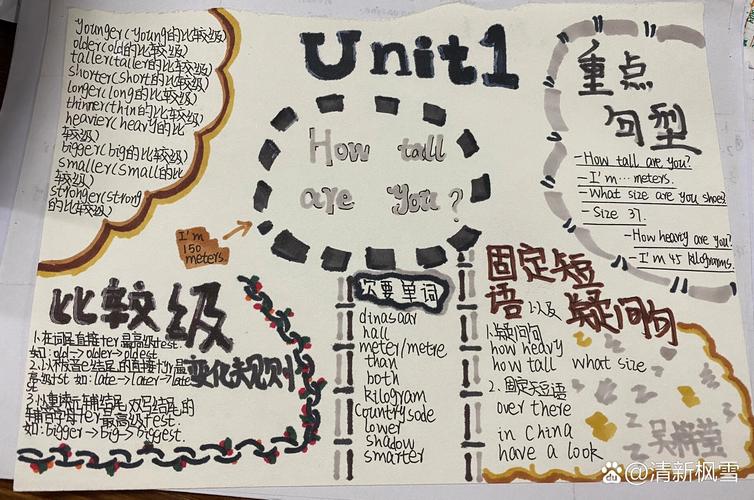 younger(young的比较级)
older(old的比较级)
taller(taller的比较级)
shorter(short的比较级)
longer(long的比较级)
thinner(thin的比较级)
heavier(heavy的比
较级)
bigger(big的比较级)
smaller(small的比
较级)
stronger(strong
的比较级)
Unit1
How tall
are you?
I'm
150
meters.
重点
句型
-How tall are you?
-I'm…meters.
-What size are you shoes?
-Size 37.
-How heavy are you?
-I'm 45 kilograms.
比较级
变化规则
1.在词尾直接+er最高级+est.
如:old→older→oldest
2.以不发音e结尾的直接+r,最
高级+st 如:late→later→late
3.以重读 辅结尾,双写结尾的
辅 字母+er,最高级+est.
如:bigger→big→biggest.
次要单词
dinasaar
hall
meter/metre
than
both
kilogram
countrysode
lower
shadow
smarter
固定短
语 以及 疑问句
1.疑问句
how heavy
how tall what size
2.固定短语
over there
in China
have a look
Bai百度 @清新枫雪